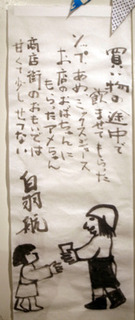 買い物の途中で
飲ませてもらった
ミックスジュース
お店のおばちゃんに
もらったアメちゃん
商店街のおもいでは
甘くて少しせつない
白羽